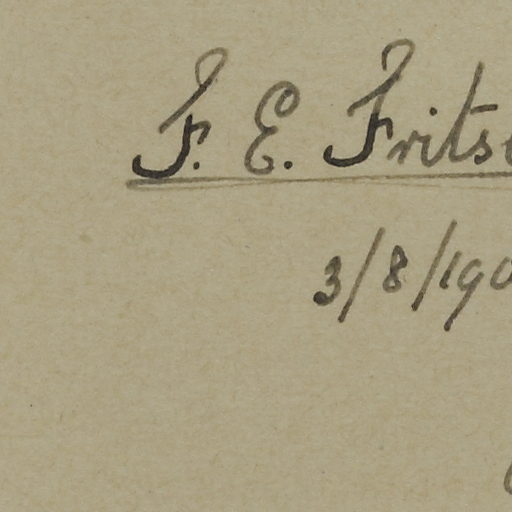 F. E. Frits
3/8/190